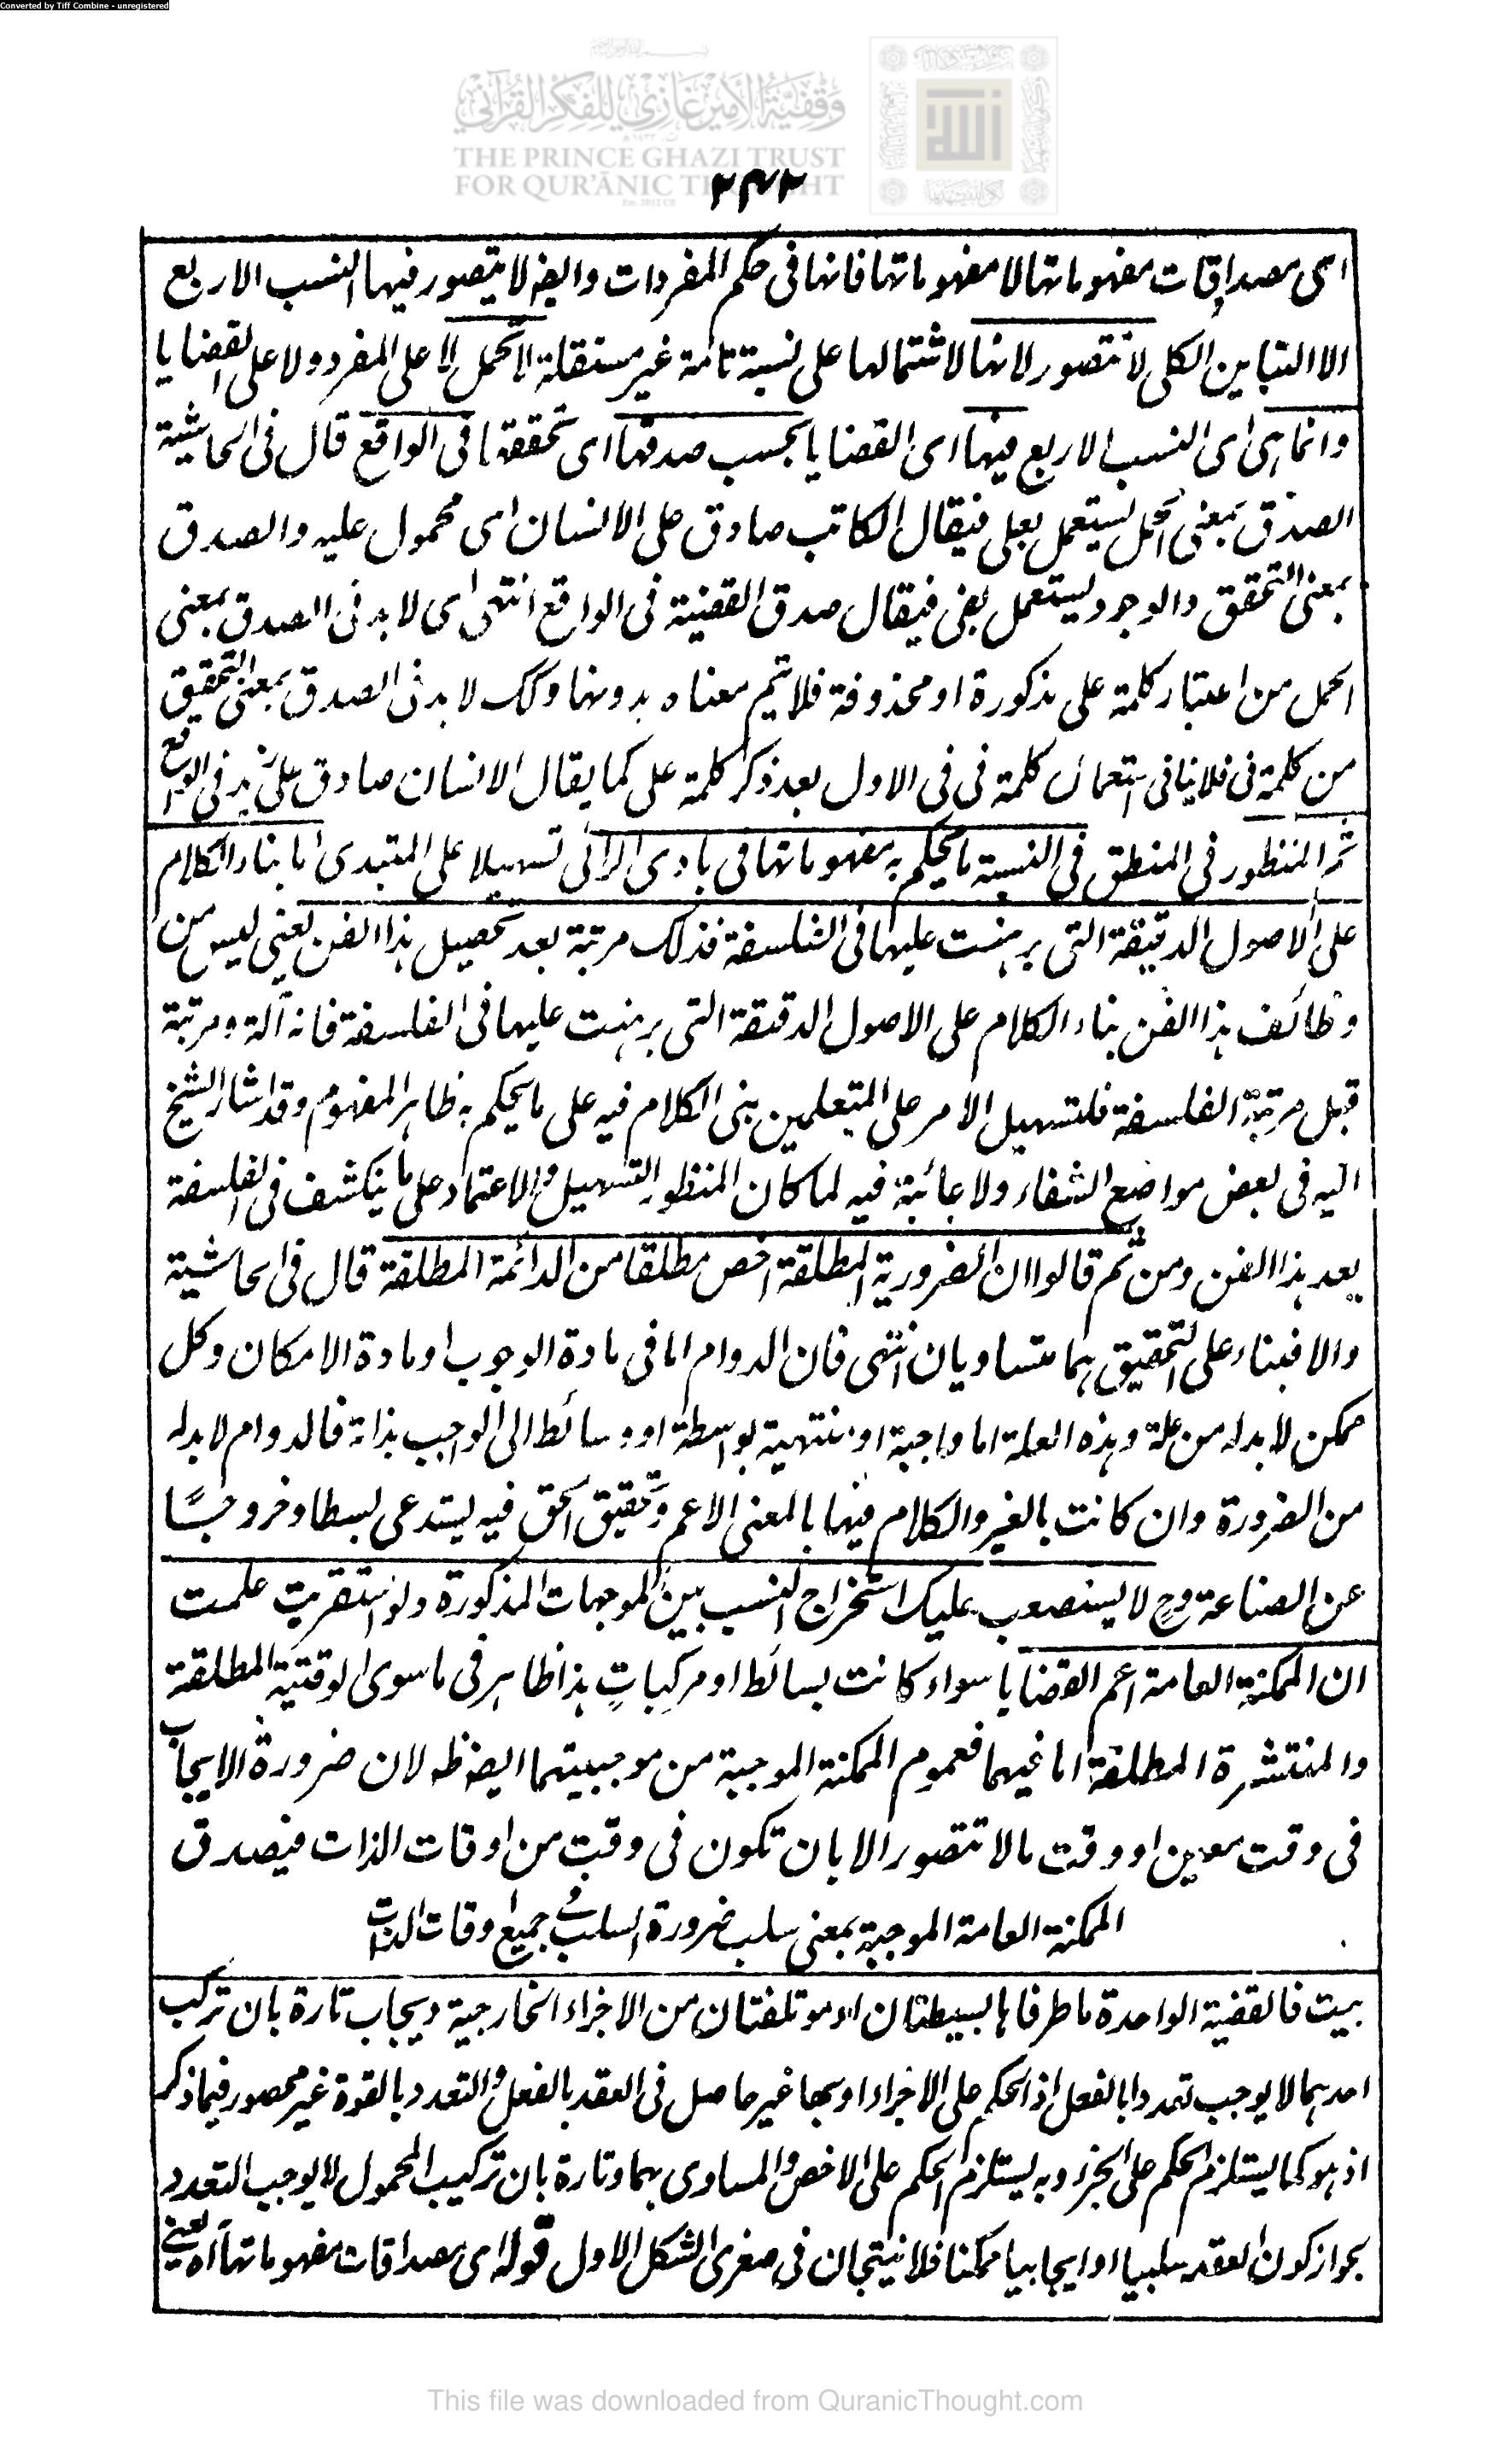 Converted by Tiff Combine - unregistered
وقفية الأمير غازي للفكر القرآني
THE PRINCE GHAZI TRUST
FOR QUR'ĀNIC THOUGHT
Est. 2012 CE
۲۴۲
اى مصداقات مفهوماتها لا مفهوماتها فانها فى حكم المفردات وايضا لا يتصور فيها النسب الاربع
الا التباين الكلى لا تتصور لانها لاشتمالها على نسبة تامة غير مستقلة لا تحمل لا على المفرد ولا على القضايا
وانما هى اى النسب الاربع فيها اى القضايا بحسب صدقها اى تحققها فى الواقع قال فى الحاشية
الصدق بمعنى الحمل يستعمل بعلى فيقال الكاتب صادق على الانسان اى محمول عليه والصدق
بمعنى التحقق والوجود يستعمل بفى فيقال صدق القضية فى الواقع انتهى اى لا بد فى الصدق بمعنى
الحمل من اعتبار كلمة على مذكورة او محذوفة فلا يتم معناه بدونها وكك لا بد فى الصدق بمعنى التحقيق
من كلمة فى فلا ينافى استعمال كلمة فى فى الاول بعد ذكر كلمة على كما يقال الانسان صادق على زيد فى الواقع
ثم المنظور فى المنطق فى النسبة ما يحكم به مفهوماتها فى بادى الرائى تسهيلا على المبتدى اما بناء الكلام
على الاصول الدقيقة التى برهنت عليها فى الفلسفة فذلك مرتبة بعد تحصيل هذا الفن يعنى ليس من
وظائف هذا الفن بناء الكلام على الاصول الدقيقة التى برهنت عليها فى الفلسفة فانه آلة ومرتبة
قبل مرتبة الفلسفة فلتسهيل الامر على المتعلمين بنى الكلام فيه على ما يحكم به ظاهر المفهوم وقد اشار الشيخ
اليه فى بعض مواضع الشفاء ولا عائبة فيه لما كان المنظور التسهيل والاعتماد على ما ينكشف فى الفلسفة
بعد هذا الفن ومن ثم قالوا ان الضرورية المطلقة اخص مطلقا من الدائمة المطلقة قال فى الحاشية
والا فبناء على التحقيق هما متساويان انتهى فان الدوام اما فى مادة الوجوب او مادة الامكان وكل
ممكن لا بد له من علة وهذه العلة اما واجبة او منتهية بواسطة او وسائط الى الواجب بذاته فالدوام لا بد له
من الضرورة وان كانت بالغير والكلام فيها بالمعنى الاعم وتحقيق الحق فيه يستدعى بسطا وخروجًا
عن الصناعة وح لا يستصعب عليك استخراج النسب بين الموجهات المذكورة ولو استقريت علمت
ان الممكنة العامة اعم القضايا سواء كانت بسائط او مركبات هذا ظاهر فى ما سوى الوقتية المطلقة
والمنتشرة المطلقة اما فيهما فعموم الممكنة الموجبة من موجبيتهما ايضا ظ لان ضرورة الايجاب
فى وقت معين او وقت ما لا تتصور الا بان تكون فى وقت من اوقات الذات فيصدق
الممكنة العامة الموجبة بمعنى سلب ضرورة السلب فى جميع اوقات الذات
بيت فالقضية الواحدة ما طرفاها بسيطتان او موتلفتان من الاجزاء الخارجية ويجاب تارة بان تركب
احدهما لا يوجب تعددا بالفعل اذ الحكم على الاجزاء او بها غير حاصل فى العقد بالفعل والتعدد بالقوة غير محصور فيما ذكر
اذ هو كما يستلزم الحكم على الجزء وبه يستلزم الحكم على الاخص والمساوى بهما وتارة بان تركيب المحمول لا يوجب التعدد
بجواز كون العقد سلبيا او ايجابيا ممكنا فلا ينتجان فى صغرى الشكل الاول قوله اى مصداقات مفهوماتها اه يعنى
This file was downloaded from QuranicThought.com